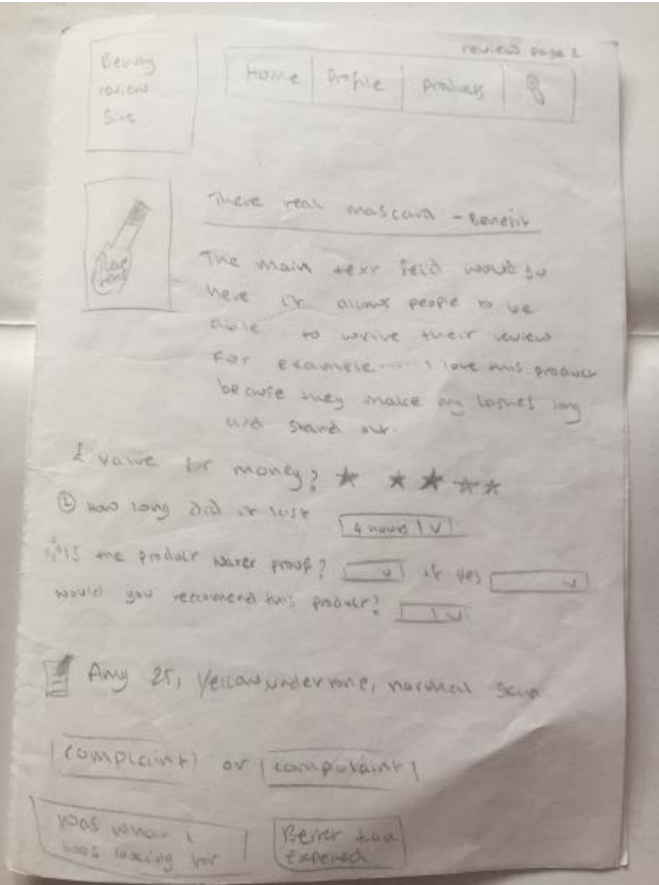 review page 2
Beuaty
review
Site
Home
Profile
products
There real mascara - Benefit
The main text feild would go
here it allows people to be
able to write their review
For example.... I love this product
because they make my lashes long
and stand out.
£ value for money?
How long did it last
4 hours
Is the product water proof?
if yes
would you reccomend this product?
Amy 25, Yellow undertone, normal skin
complaint
or
compulaint
was what I
was looking for
Better than
expected